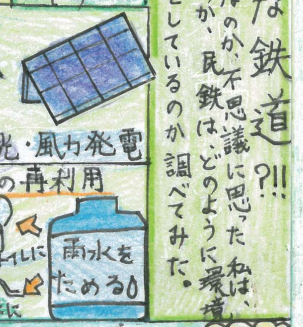 な鉄道?!!
なのか、不思議に思った私は、
が、民鉄は、どのように環境
としているのか調べてみた。
光・風力発電
の再利用
雨水を
ためる
イレに